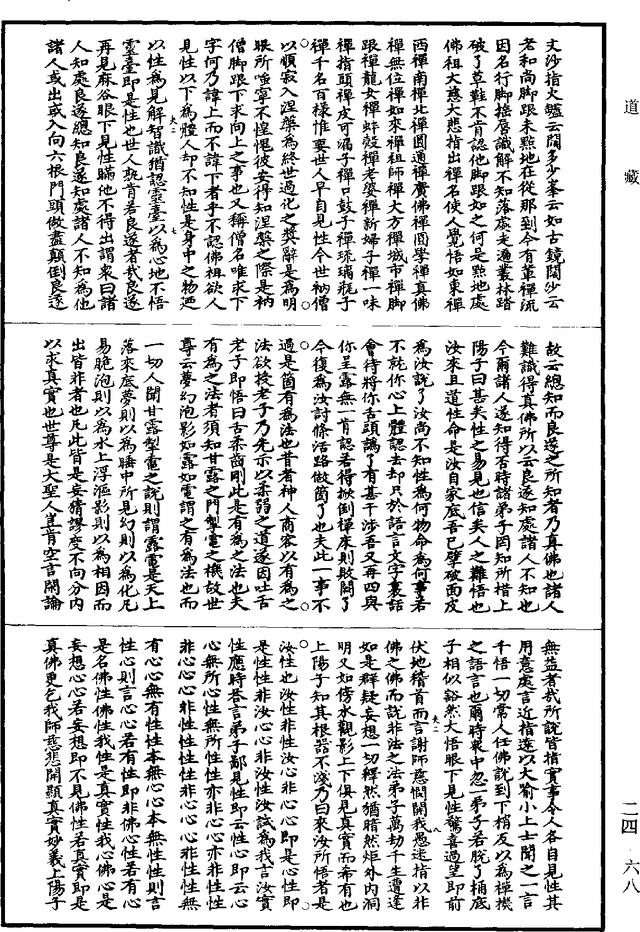 道藏
文沙指火鑪云闊多少峯云如古鏡闊沙云
老和尚脚跟未點地在從那到今有葦禪流
因名行脚搖唇識解不知落處走遍叢林踏
破了草鞋不肯認他脚跟如之何是點地處
佛祖大慈大悲指出禪名使人覺悟如東禪
西禪南禪北禪圓通禪廣佛禪圓學禪真佛
禪無位禪如來禪祖師禪大方禪城市禪脚
跟禪龍女禪蚌殼禪老婆禪新婦子禪一味
禪指頭禪皮可漏子禪口鼓子禪琉璃瓶子
禪千名百樣惟要世人早自見性今世衲僧
以順寂入涅槃為終世過化之獎辭是為明
眼所唾寧不惶愧彼安得知涅槃之際是衲
僧脚跟下求向上之事也又稱僧名唯求下
字何乃諱上而不諱下者乎不認佛祖欲人
見性以下為體人却不知性是身中之物迺
夫二 七
以性為見解智識猶認靈臺以為心地不悟
靈臺即是性也世人孰肯若良遂者哉良遂
再見麻谷眼下見性瞞他不得出謂衆曰諸
人知處良遂總知良遂知處諸人不知為他
諸人或出或入向六根門頭做盡顛倒良遂
故云總知而良遂之所知者乃真佛也諸人
難識得真佛所以云良遂知處諸人不知也
今爾諸人遂知得否時諸弟子罔知所措上
陽子曰甚矣性之易見也信矣人之難悟也
汝來且道性命是汝自家底吾已擘破面皮
為汝說了汝尚不知性為何物命為何事若
不就你心上體認去却只於語言文字裏話
會待將你舌頭謾了有甚干涉吾又再四與
你呈露無一肯認若得掀倒禪床則敢鬪了
今復為汝討條活路做箇了也夫此一事不
過是箇有為法也昔者神人商容以有為之
法欲授老子乃先示以柔弱之道遂因吐舌
老子即悟曰舌柔齒剛此是有為之法也夫
有為之法者須知甘露之門掣電之機故世
尊云夢幻泡影如露如電謂之有為法也而
一切人聞甘露掣電之說則謂露電是天上
落來底夢則以為睡中所見幻則以為化凡
易脆泡則以為水上浮漚影則以為相因而
出皆非者也凡此皆是妄猜謬度不向分內
以求真實也世尊是大聖人豈肯空言開論
無益者哉所說皆指實事令人各自見性其
用意處言近指遠以大喻小上士聞之一言
千悟一切常人任佛說到下梢反以為禪機
之語言也爾時衆中忽一弟子若脫了桶底
子相似豁然大悟眼下見性驚喜過望即前
夫二 八
伏地稽首而言謝師慈憫開我愚迷指以非
佛之佛而說非法之法弟子萬劫千生遭逢
如是群疑妄想一切釋然猶暗然炬外內洞
明又如傍水觀影上下俱見真實而希有也
上陽子知其根器不淺乃曰來汝所悟者是
汝性也汝性非汝心非心心即是心性即
是性性非汝心心非汝性汝試為我言汝實
性應時答言弟子鄙見性即云性心即云心
心無所心性無所性性亦非心心亦非性性
非心心心非性性性非心心心非性性無
有心心無有性性本無心心本無性性則言
性心則言心心若有性即非佛心性若有心
是名佛性佛性我性是真實性我心佛心是
妄想心心若妄想即不見佛性若真實即是
真佛更乞我師慈悲開顯真實妙義上陽子
二四·六八